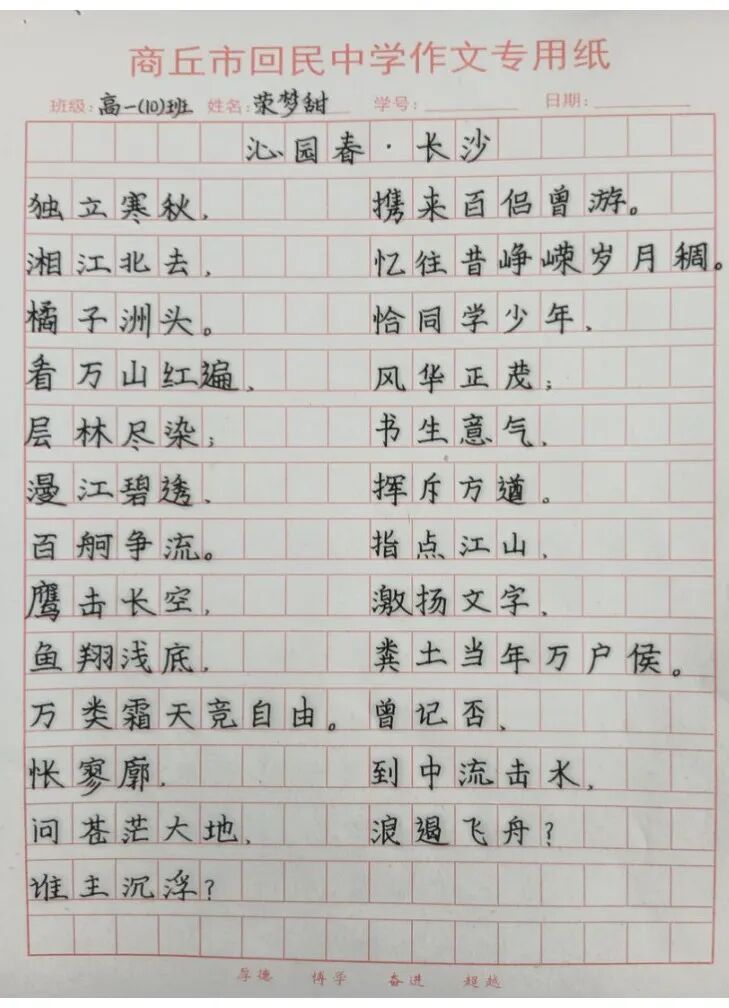 商丘市回民中学作文专用纸
班级:高一(10)班 姓名:荥梦甜 学号: 日期:
沁园春·长沙
独立寒秋,
湘江北去,
橘子洲头。
看万山红遍、
层林尽染;
漫江碧透、
百舸争流。
鹰击长空,
鱼翔浅底,
万类霜天竞自由。
怅寥廓,
问苍茫大地,
谁主沉浮?
携来百侣曾游。
忆往昔峥嵘岁月稠。
恰同学少年、
风华正茂;
书生意气、
挥斥方遒。
指点江山、
激扬文字、
粪土当年万户侯。
曾记否、
到中流击水,
浪遏飞舟?
厚德 博学 奋进 超越